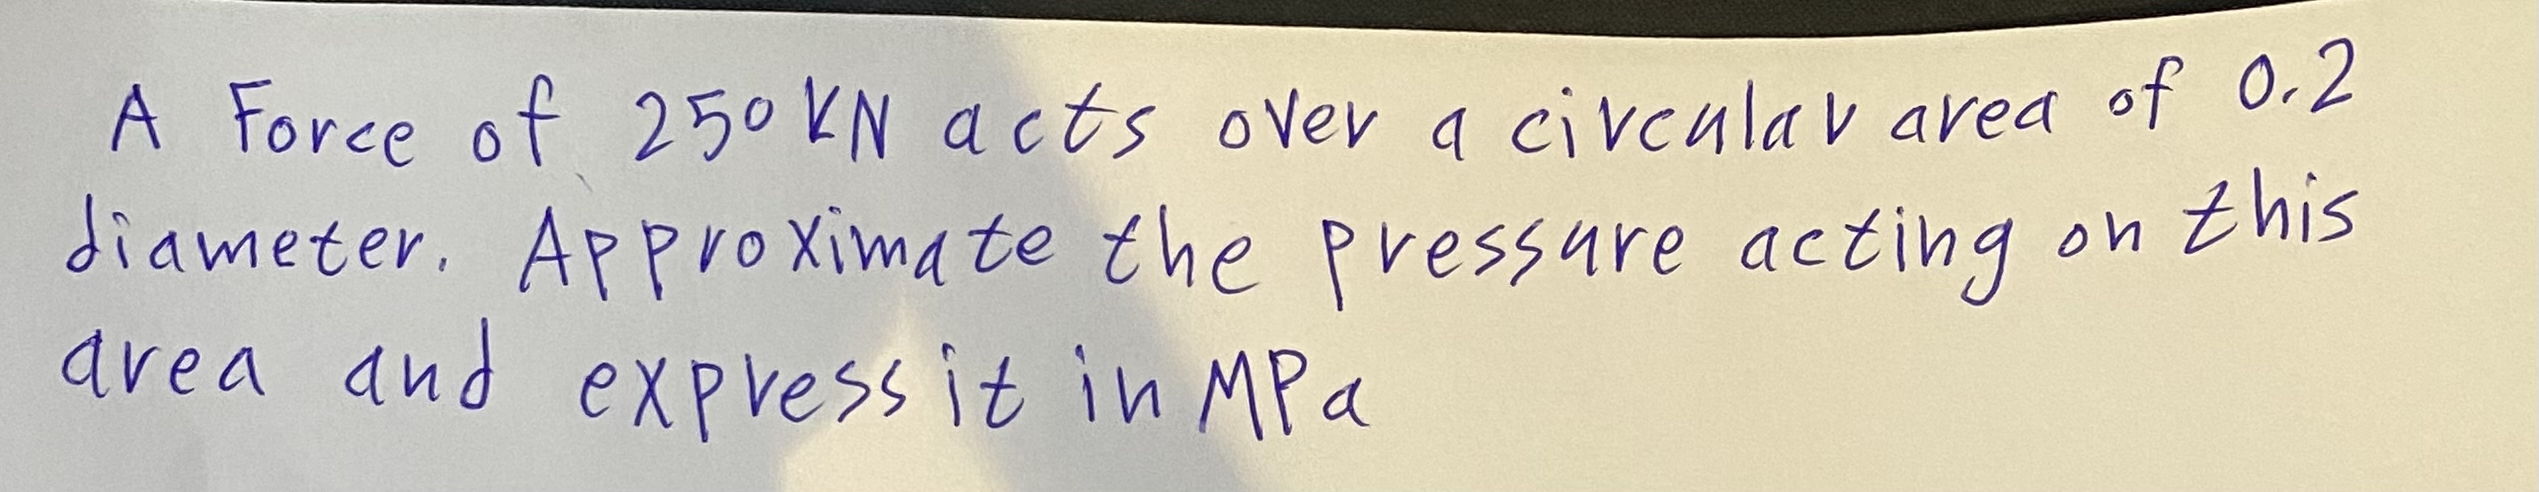 A Force of 250 KN acts over a circular area of 0.2
diameter. Approximate the pressure acting on this
area and express it in MPa